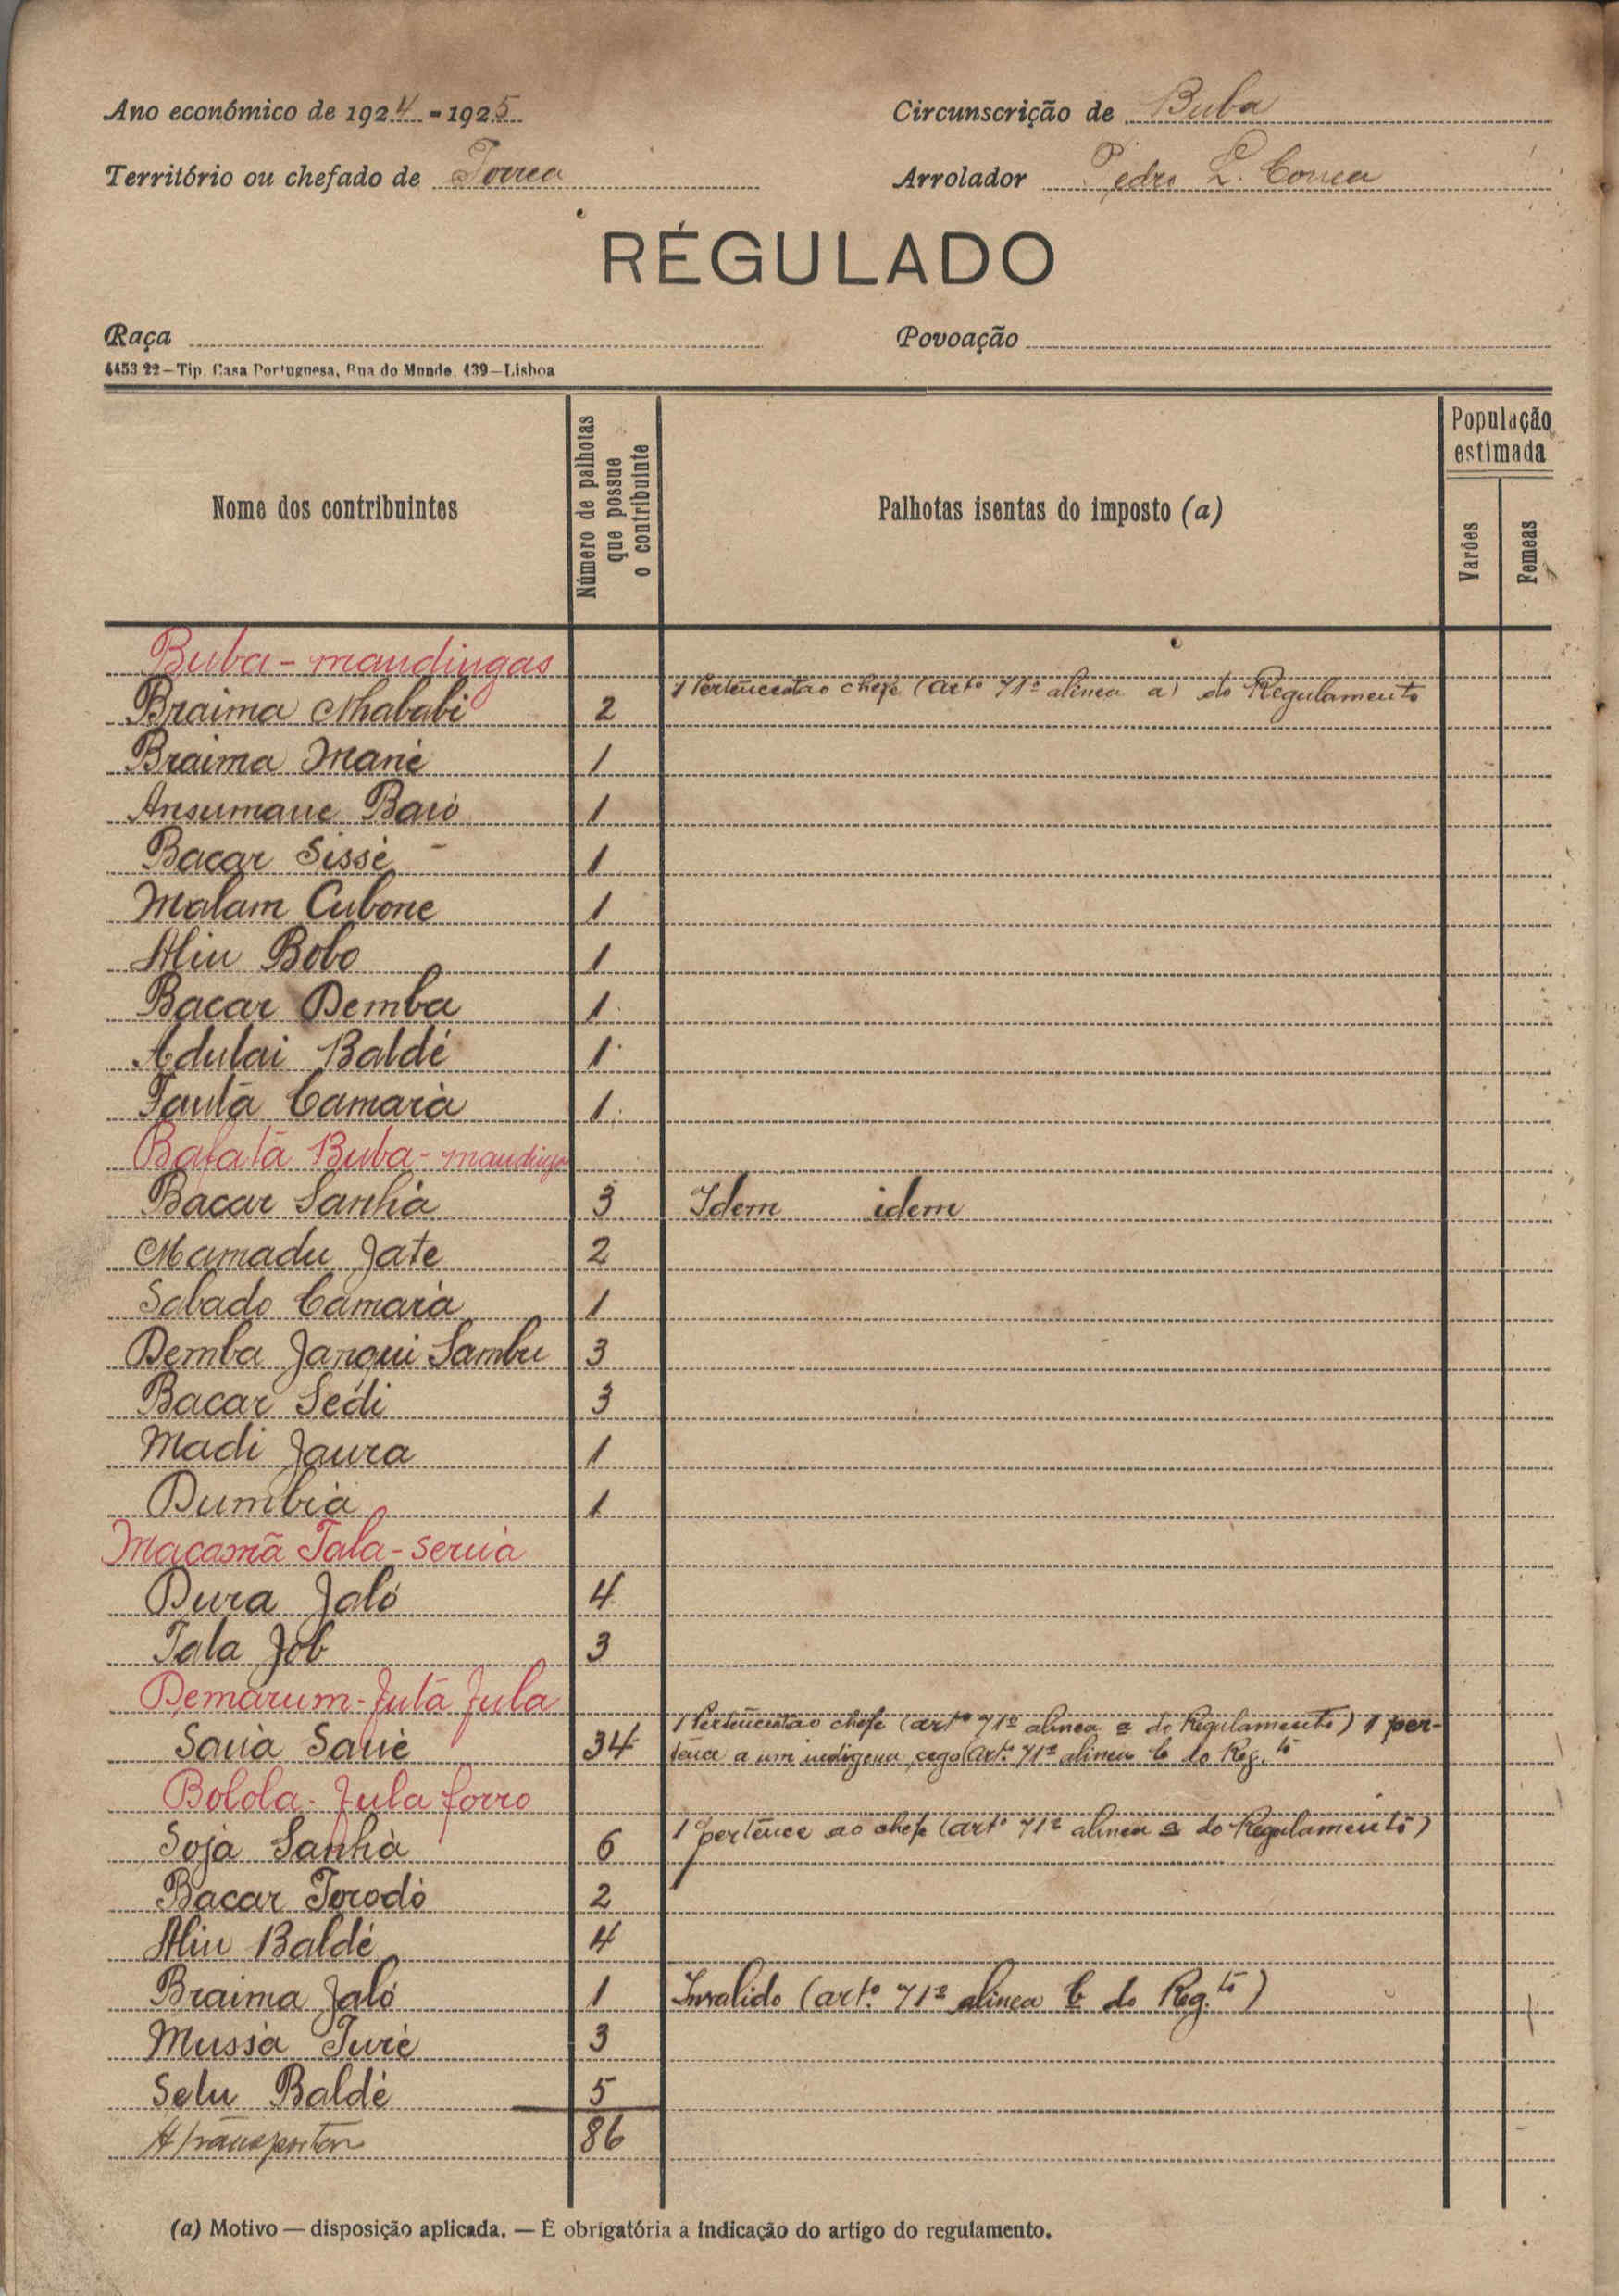 Ano económico de 1924 - 1925
Circunscrição de Buba
Território ou chefado de Forrea
Arrolador Pedro L. Correa
RÉGULADO
Raça
Povoação
4453 22—Tip. Casa Portuguesa, Rua do Mundo, 139—Lisboa
Nome dos contribuintes
Número de palhotas que possue o contribuinte
Palhotas isentas do imposto (a)
População estimada
Varões
Femeas
Buba - mandingas
Braima Mhababi 2 1 Pertencente ao chefe (artº 71º alinea a) do Regulamento
Braima Mané 1
Ansumane Baió 1
Bacar Sissé 1
Malam Cubone 1
Aliu Bobo 1
Bacar Demba 1
Adulai Baldé 1
Fautá Camará 1
Bafatá Buba - mandinga
Bacar Sanhá 3 Idem idem
Mamadu Jate 2
Sabado Camará 1
Demba Janqui Sambu 3
Bacar Sedi 3
Madi Jaura 1
Dumbiá 1
Tala -
Dura Jaló 4
Tala Job 3
Demarum - Futá Fula
34 1 Pertencente ao chefe (artº 71º alinea a do Regulamento) 1 per-
tence a um indigena cego (artº 71º alinea b do Reg.to
Bolola - Fula forro
Sojá Sanhá 6 1 pertence ao chefe (artº 71º alinea a do Regulamento)
Bacar Torodó 2
Aliu Baldé 4
Braima Jaló 1 Invalido (artº 71º alinea b do Reg.to)
Mussá Turé 3
Selu Baldé 5
A transportar 86
(a) Motivo — disposição aplicada. — É obrigatória a indicação do artigo do regulamento.